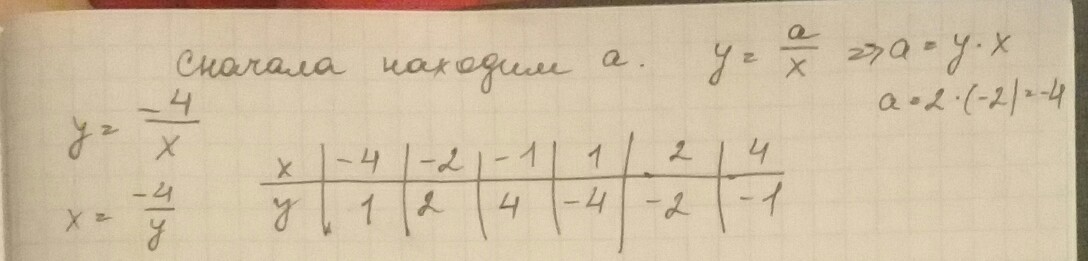 Сначала находим a. y = a/x => a = y · x
a = 2 · (-2) = -4
y = -4/x
x | -4 | -2 | -1 | 1 | 2 | 4
y | 1 | 2 | 4 | -4 | -2 | -1
x = -4/y